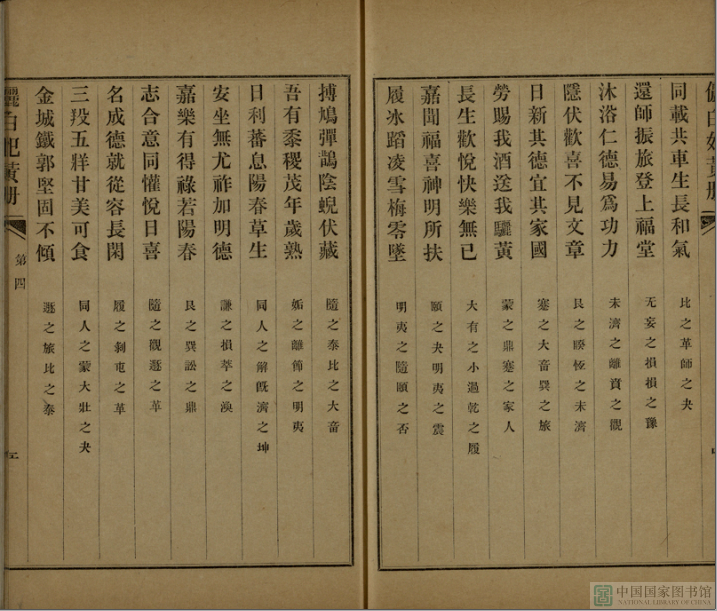 同載共車生長和氣　比之革師之夬
還師振旅登上福堂　无妄之損損之豫
沐浴仁德易為功力　未濟之離賁之觀
隱伏歡喜不見文章　艮之睽恆之未濟
日新其德宜其家國　蹇之大畜巽之旅
勞賜我酒送我驪黃　蒙之鼎蹇之家人
長生歡悅快樂無已　大有之小過乾之履
嘉聞福喜神明所扶　頤之夬明夷之震
履冰蹈凌雪梅零墜　明夷之隨頤之否
搏鳩彈鵲陰蜺伏藏　隨之泰比之大畜
吾有黍稷茂年歲熟　姤之離節之明夷
日利蕃息陽春草生　同人之解既濟之坤
安坐無尤祚加明德　謙之損萃之渙
嘉樂有得祿若陽春　艮之巽訟之鼎
志合意同懽悅日喜　隨之觀遯之革
名成德就從容長閑　履之剝屯之革
三羖五牂甘美可食　同人之蒙大壯之夬
金城鐵郭堅固不傾　遯之旅比之泰
黃册
第四
中国国家图书馆
NATIONAL LIBRARY OF CHINA